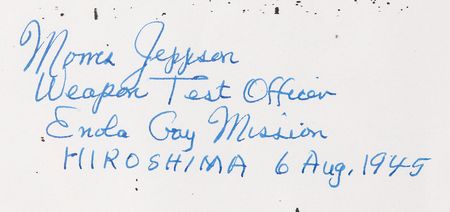 Morris Jeppson
Weapon Test Officer
Enola Gay Mission
HIROSHIMA 6 Aug. 1945